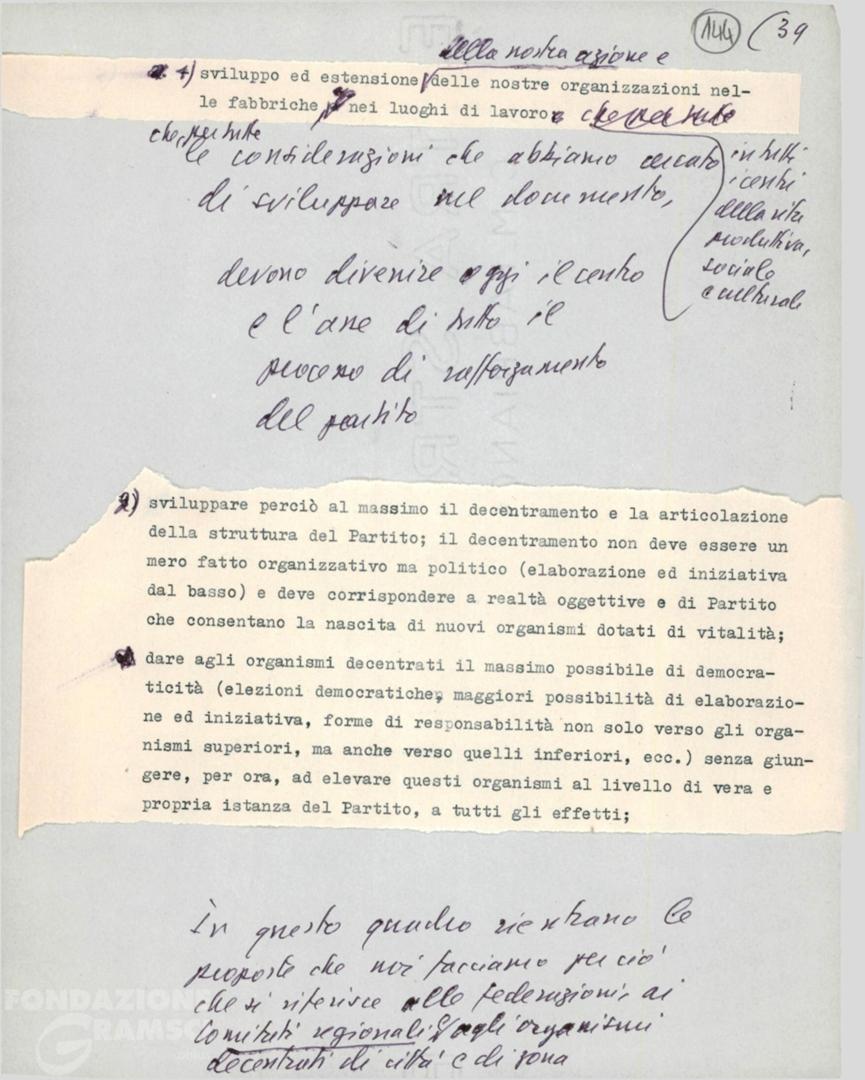 144 (39
della nostra azione e
4) sviluppo ed estensione delle nostre organizzazioni nel-
le fabbriche, nei luoghi di lavoro, che per tutte
che, per tutte
le considerazioni che abbiamo cercato
di sviluppare nel documento,
in tutti
i centri
della vita
produttiva,
sociale
e culturale
devono divenire oggi il centro
e l'asse di tutto il
processo di rafforzamento
del partito
2) sviluppare perciò al massimo il decentramento e la articolazione
della struttura del Partito; il decentramento non deve essere un
mero fatto organizzativo ma politico (elaborazione ed iniziativa
dal basso) e deve corrispondere a realtà oggettive e di Partito
che consentano la nascita di nuovi organismi dotati di vitalità;
dare agli organismi decentrati il massimo possibile di democra-
ticità (elezioni democratiche, maggiori possibilità di elaborazio-
ne ed iniziativa, forme di responsabilità non solo verso gli orga-
nismi superiori, ma anche verso quelli inferiori, ecc.) senza giun-
gere, per ora, ad elevare questi organismi al livello di vera e
propria istanza del Partito, a tutti gli effetti;
In questo quadro rientrano le
proposte che noi facciamo per ciò
che si riferisce alle federazioni, ai
Comitati regionali e agli organismi
decentrati di città e di zona
FONDAZIONE
GRAMSCI